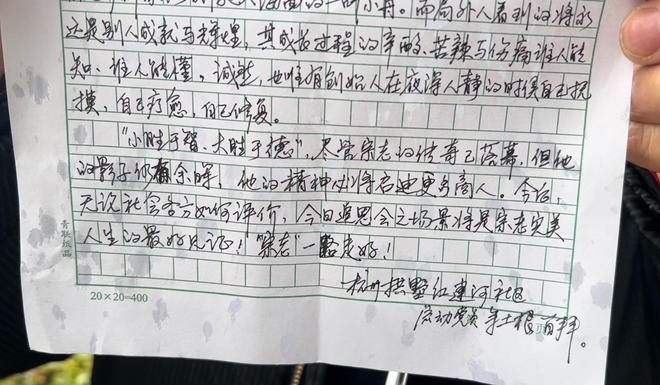 的一叶小舟。而局外人看到的将永
还是别人成就与辉煌，其成长过程的辛酸、苦辣与伤痛谁人能
知、谁人能懂。诚然，也唯有创始人在夜深人静的时侯自己抚
摸，自己疗愈，自己修复。
"小胜于智、大胜于德"，尽管宗老的传奇已落幕，但他
的影子仍有余晖，他的精神必将启迪更多商人。今后，
无论社会各方如何评价，今日追思会之场景将是宗老完美
人生的最好见证！"宗老"一路走好！
杭州拱墅红建河社区
党员 首拜。
青联纸品
20×20=400